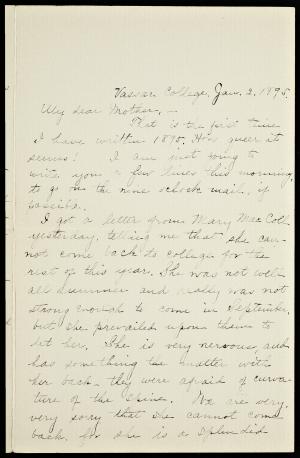 Vassar College, Jan. 2, 1895.
My dear Mother, —
That is the first time
I have written 1895. How queer it
seems! I am just going to
write you a few lines this morning,
to go on the nine oclock mail, if
possible.
I got a letter from Mary Mac Coll
yesterday, telling me that she can-
not come back to college for the
rest of this year. She was not well
all summer and really was not
strong enough to come in September,
but she prevailed upon them to
let her. She is very nervous, and
has something the matter with
her back - they were afraid of curva-
ture of the spine. We are very,
very sorry that she cannot come
back, for she is a splendid